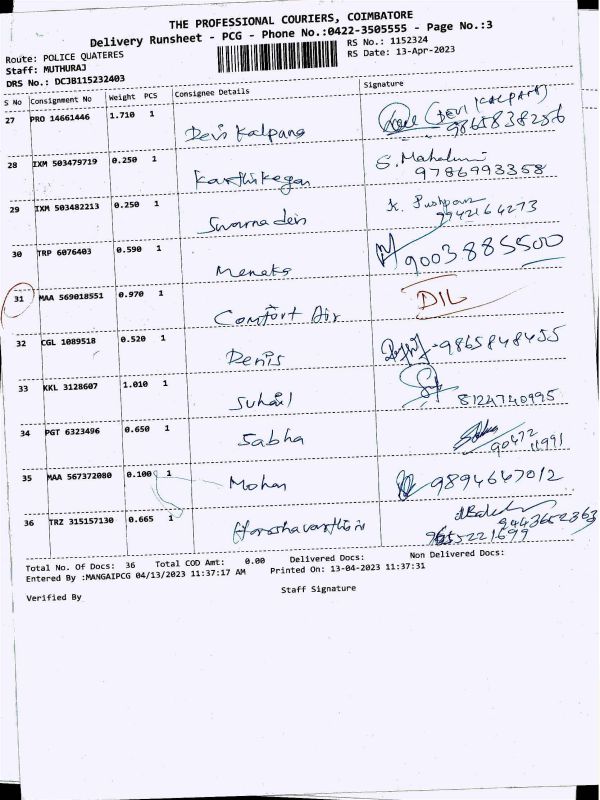 THE PROFESSIONAL COURIERS, COIMBATORE
Delivery Runsheet - PCG - Phone No.:0422-3505555 - Page No.:3
Route: POLICE QUATERES
RS No.: 1152324
Staff: MUTHURAJ
RS Date: 13-Apr-2023
DRS No.: DCJB115232403
S No Consignment No Weight PCS Consignee Details Signature
27 PRO 14661446 1.710 1 Devi Kalpana (DEVI KALPANA)
9865838256
28 IXM 503479719 0.250 1 Karthikegan S. Mahalaxmi
9786993358
29 IXM 503482213 0.250 1 Swarna devi K. Pushpam
9942164273
30 TRP 6076403 0.590 1 Menaka 9003885500
31 MAA 569018551 0.970 1 Comfort Air DIL
32 CGL 1089518 0.520 1 Denis 9865848455
33 KKL 3128607 1.010 1 Suhail 8124740995
34 PGT 6323496 0.650 1 Sabha 90472
11991
35 MAA 567372080 0.100 1 Mohan 9894647012
36 TRZ 315157130 0.665 1 Harshavarthini
9443652363
9655221699
Total No. Of Docs: 36 Total COD Amt: 0.00 Delivered Docs: Non Delivered Docs:
Entered By :MANGAIPCG 04/13/2023 11:37:17 AM Printed On: 13-04-2023 11:37:31
Staff Signature
Verified By